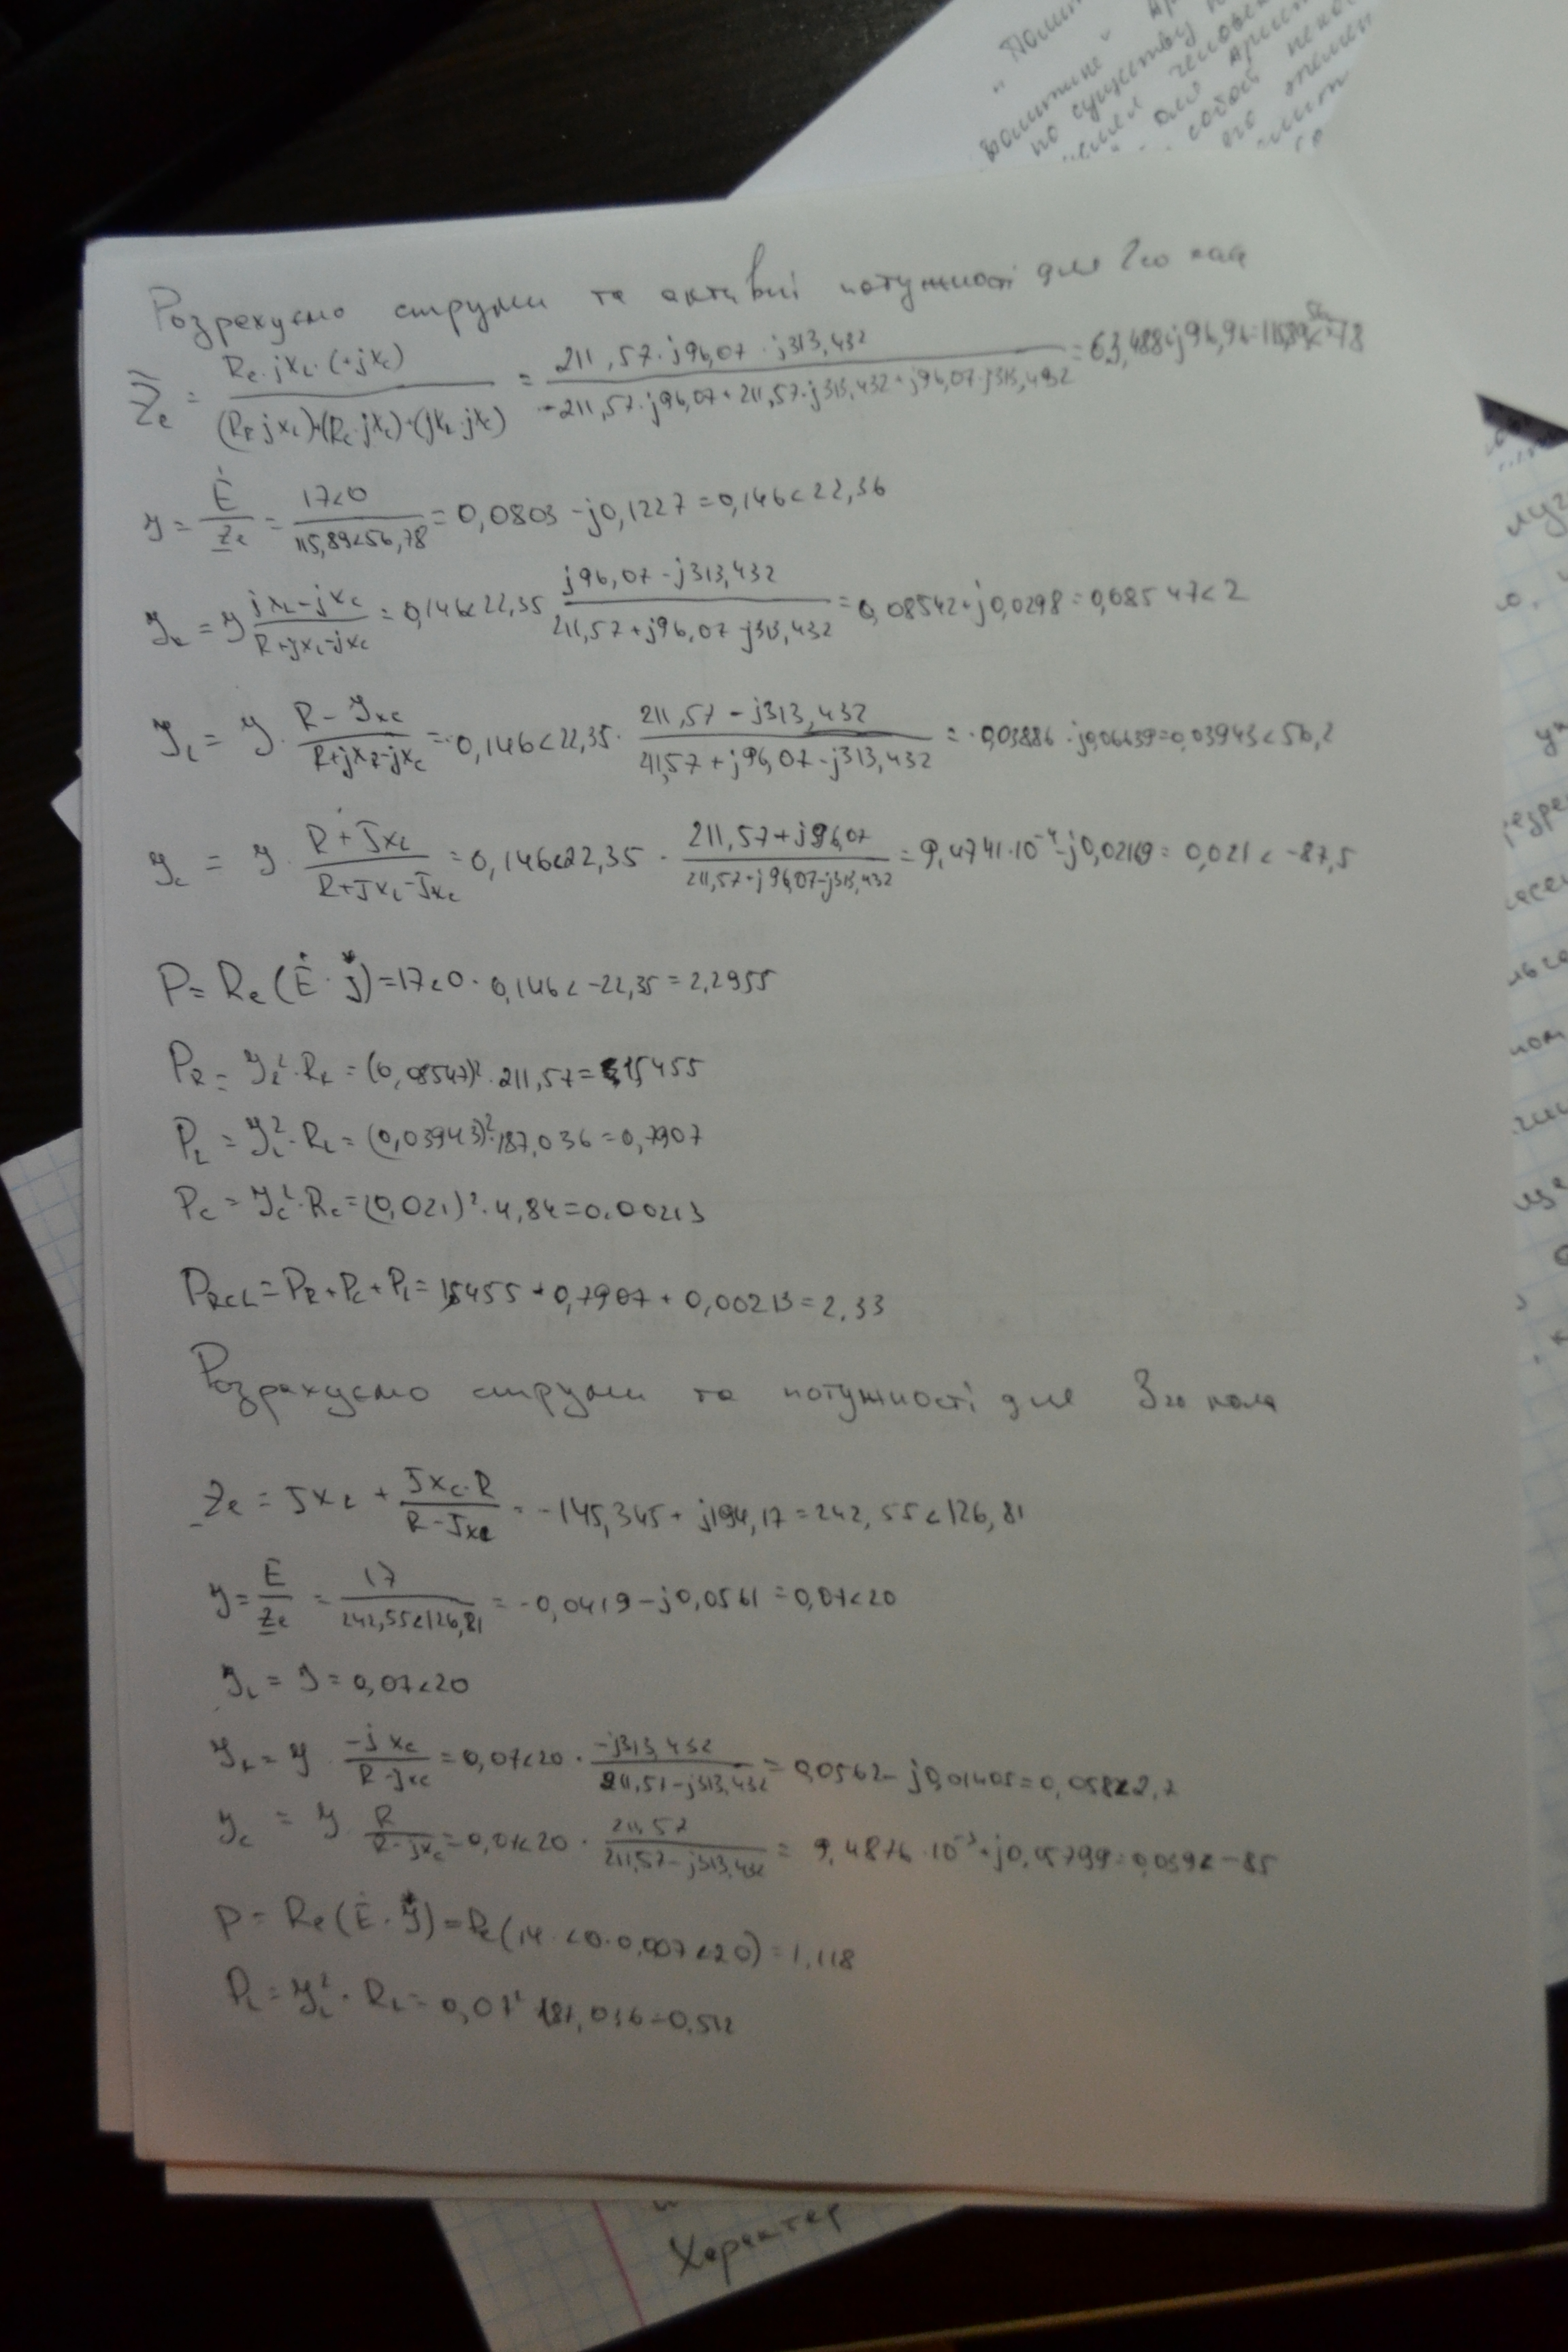 "Полит
политике"
по существу
человек
для Арист
собой
его
Розрахуємо струми та активні потужності для 2го кола
Z̲e = Re·jXL·(+jXc) / (RejXL)+(Rc·jXc)+(jXL·jXc) = 211,57·j96,07·j313,432 / -211,57·j96,07+211,57·j313,432+j96,07·j313,432 = 63,488+j96,96=115,89<56,78
У = Ė/Z̲e = 17<0 / 115,89<56,78 = 0,0803-j0,1227=0,146<22,36
УR = У jXL-jXc / R+jXL-jXc = 0,146<22,35 j96,07-j313,432 / 211,57+j96,07-j313,432 = 0,08542+j0,0298=0,08547<2
УL = У· R-Уxc / R+jXL-jXc = 0,146<22,35· 211,57-j313,432 / 211,57+j96,07-j313,432 = -0,03886-j0,06639=0,03943<56,2
Уc = У· R+JXL / R+JXL-JXc = 0,146<22,35 · 211,57+j96,07 / 211,57+j96,07-j313,432 = 9,4741·10⁻⁴-j0,0219=0,021<-87,5
P= Re(Ė·J*)=17<0·0,146<-22,35=2,2955
PR = УR²·RR = (0,08547)²·211,57=1,5455
PL = УL²·RL = (0,03943)²·187,036=0,7907
Pc = Уc²·Rc=(0,021)²·4,84=0.00213
PRCL=PR+Pc+PL=1,5455+0,7907+0,00213=2.33
Розрахуємо струми та потужності для 3го кола
Z̲e = JXL + JXc·R / R-JXc = -145,345+j194,17=242,55<126,81
У= E/Z̲e = 17 / 242,55<126,81 = -0,0419-j0,0561=0,07<20
УL = У = 0,07<20
УR = У · -jXc / R-jXc = 0,07<20 · -j313,432 / 211,57-j313,432 = 0,0562-j0,01405=0,058<2,2
Уc = У · R / R-jXc = 0,07<20 · 211,57 / 211,57-j313,432 = 9,4876·10⁻³+j0,03799=0,039<-85
P = Re(Ė·У*)=Re(17<0·0,007<20)=1,118
PL = УL²·RL = 0,07²·187,036=0.512
Характер